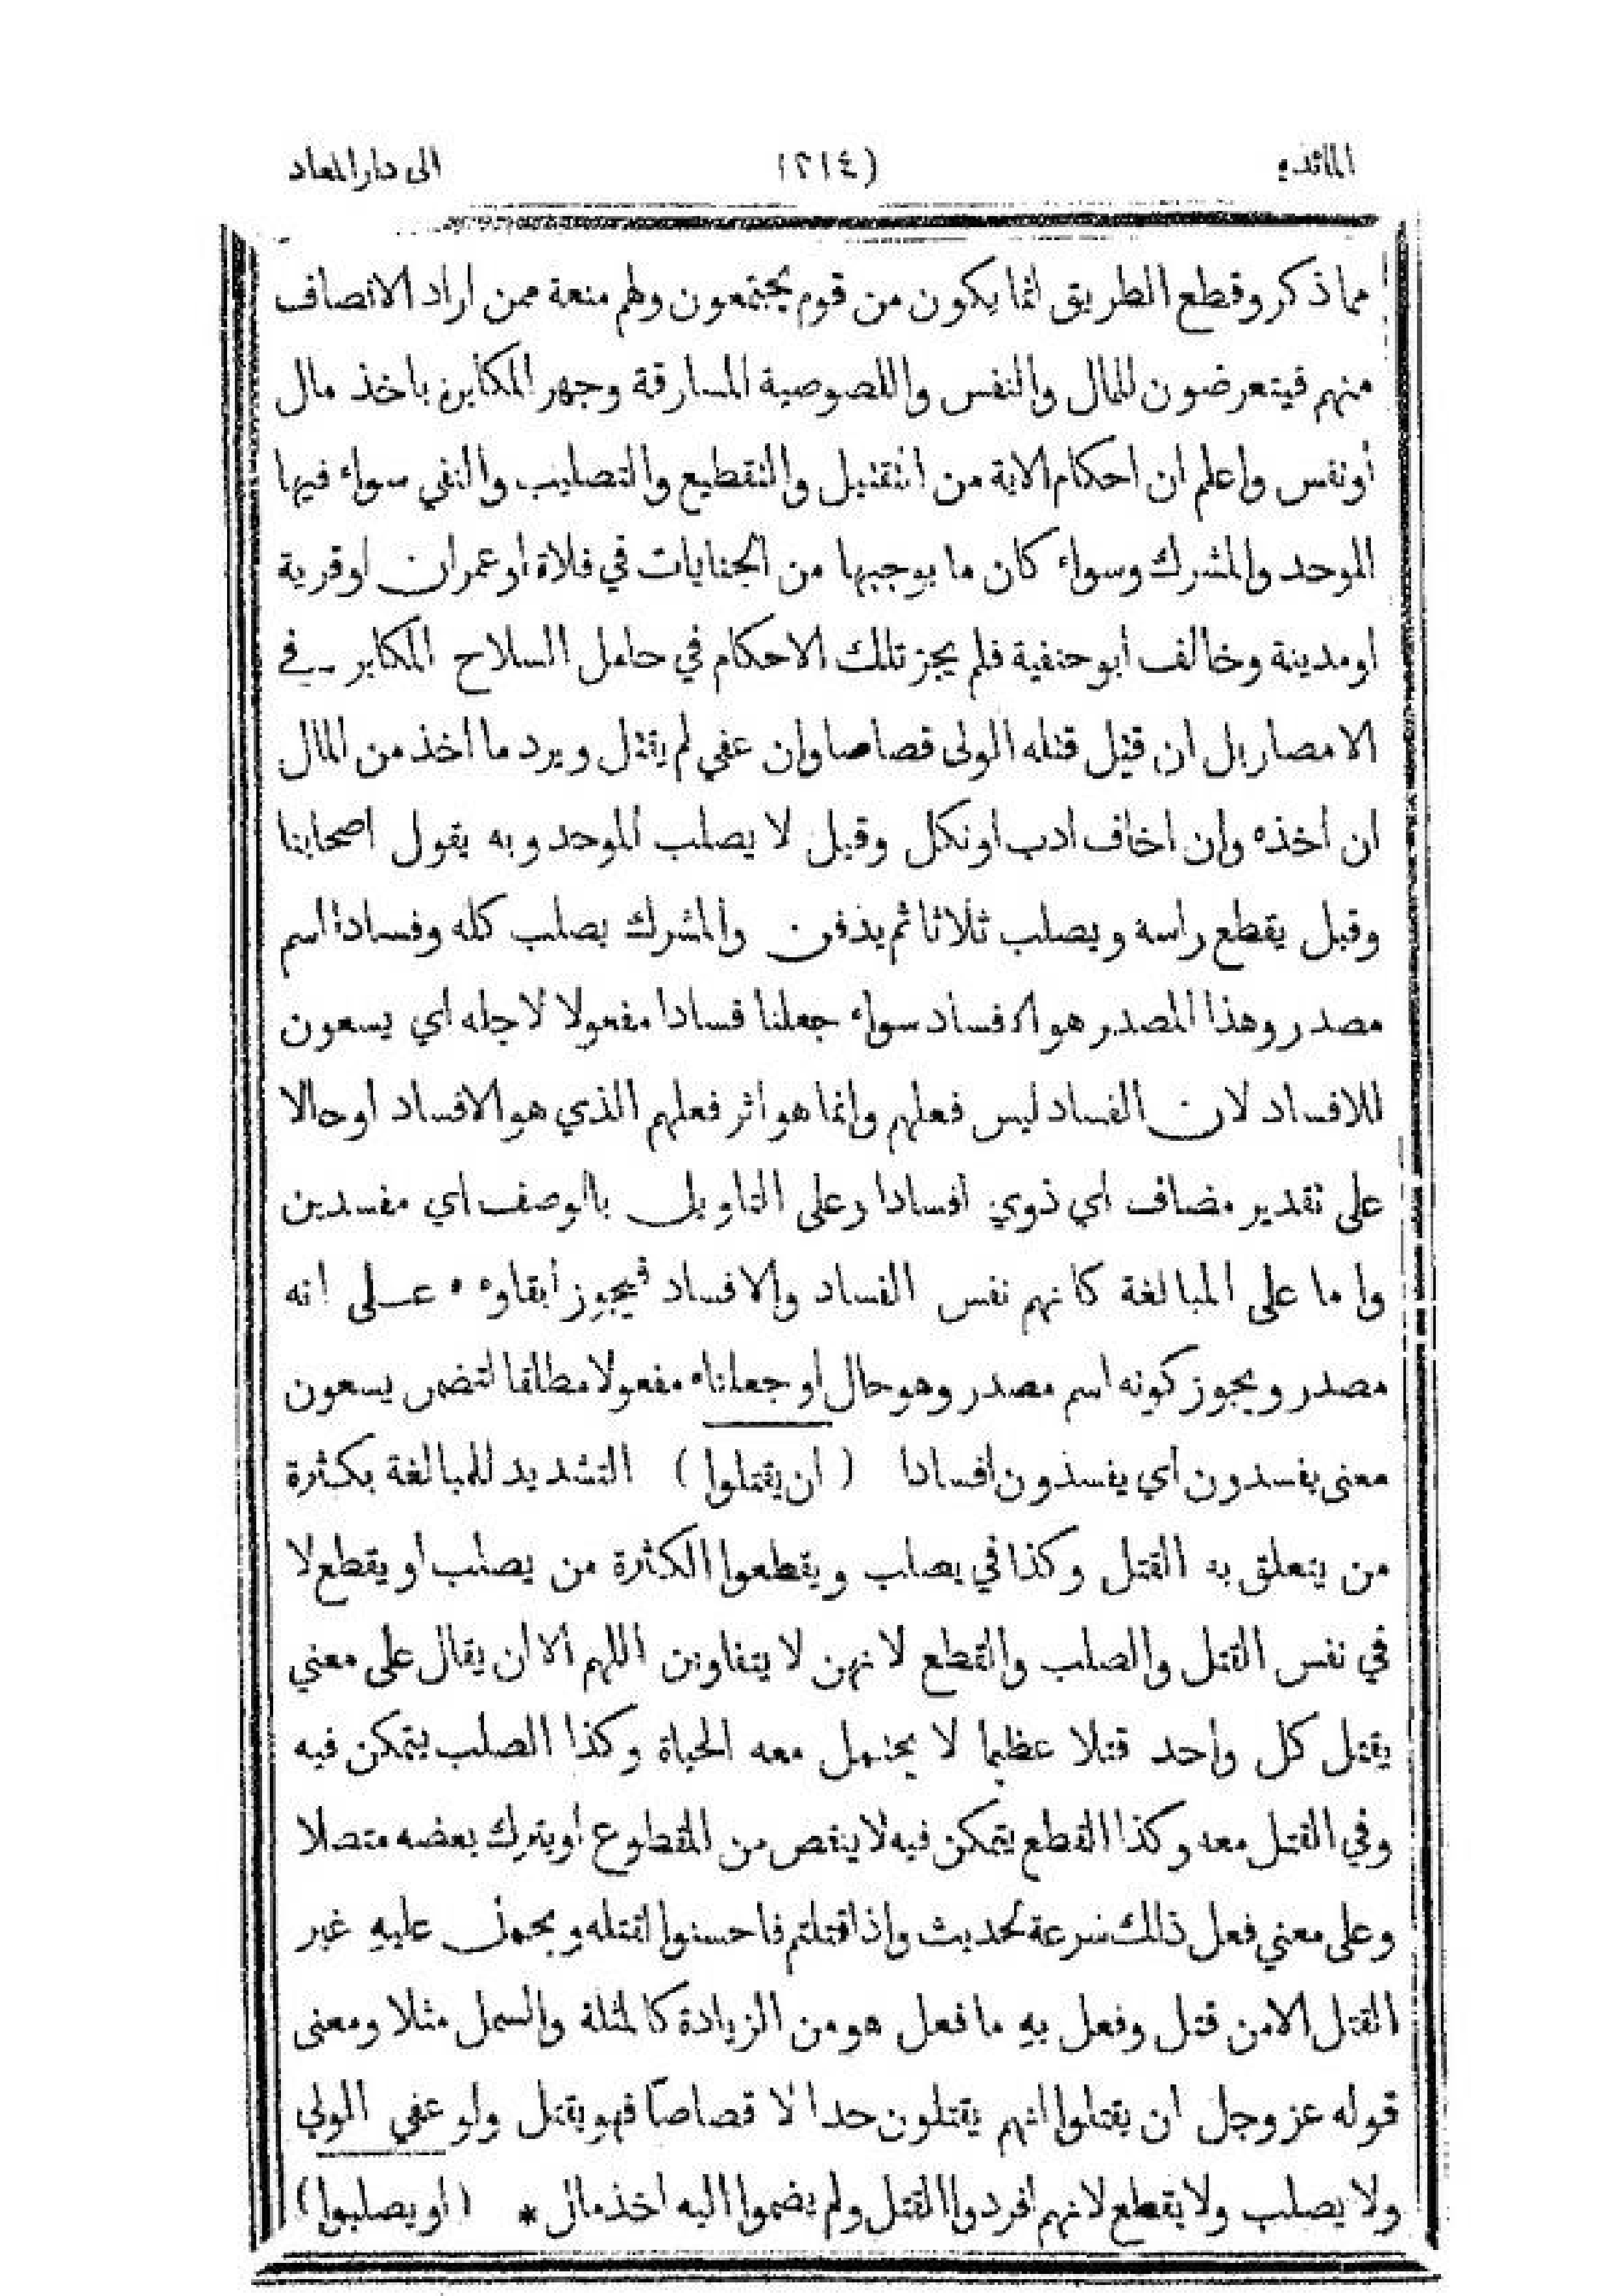 المائدة (٢١٤) الى دار المعاد
مما ذكر وقطع الطريق انما يكون من قوم يجتمعون ولهم منعة ممن اراد الانصاف
منهم فيتعرضون للمال والنفس واللصوصية المسارقة وجهر المكابرة باخذ مال
أو نفس واعلم ان احكام الاية من التقتيل والتقطيع والتصليب والنفي سواء فيها
الموحد والمشرك وسواء كان ما يوجبها من الجنايات في فلاة او عمران او قرية
او مدينة وخالف أبو حنفية فلم يجز تلك الاحكام في حامل السلاح المكابر في
الامصار بل ان قتل قتله الولى قصاصا وان عفي لم يقتل ويرد ما اخذ من المال
ان أخذه وان اخاف ادب او نكل وقيل لا يصلب الموحد وبه يقول اصحابنا
وقيل يقطع راسه ويصلب ثلاثا ثم يدفن والمشرك يصلب كله وفسادا اسم
مصدر وهذا المصدر هو الافساد سواء جعلنا فسادا مفعولا لاجله اي يسعون
للافساد لان الفساد ليس فعلهم وانما هو اثر فعلهم الذي هو الافساد او حالا
على تقدير مضاف اي ذوي افسادا وعلى التاويل بالوصف اي مفسدين
واما على المبالغة كانهم نفس الفساد والافساد فيجوز أبقاوه على انه
مصدر ويجوز كونه اسم مصدر وهو حال او جعلناه مفعولا مطلقا لتضمن يسعون
معنى يفسدون اي يفسدون افسادا (ان يقتلوا) التشديد للمبالغة بكثرة
من يتعلق به القتل وكذا في يصلب ويقطعوا الكثرة من يصلب او يقطع لا
في نفس القتل والصلب والقطع لانهن لا يتفاوتن اللهم الا ان يقال على معني
يقتل كل واحد قتلا عظيما لا يحتمل معه الحياة وكذا الصلب يتمكن فيه
وفي القتل معه وكذا القطع يتمكن فيه لا ينقص من المقطوع او يترك بعضه متصلا
وعلى معني فعل ذلك سرعة لحديث واذا قتلتم فاحسنوا القتله ويحمل عليه غير
القتل الا من قتل وفعل به ما فعل هو من الزيادة كالمثلة والسمل مثلا ومعنى
قوله عز وجل ان يقتلوا انهم يقتلون حدا لا قصاصًا فهو يقتل ولو عفي الولي
ولا يصلب ولا يقطع لانهم افردوا القتل ولم يضموا اليه اخذ مال * (او يصلبوا)